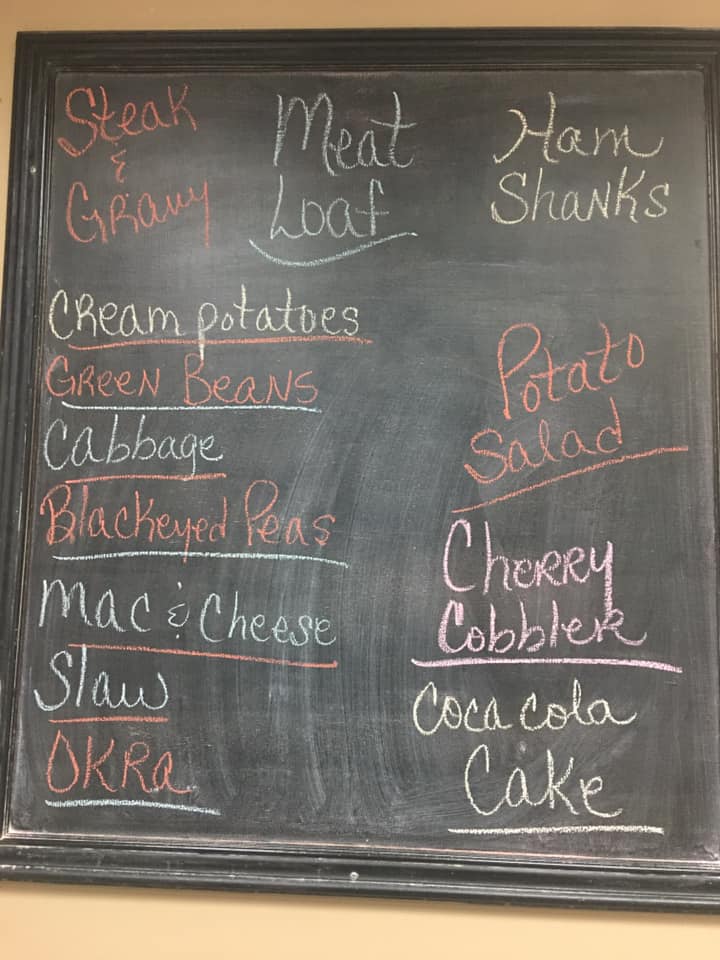 Steak
&
Gravy
Meat
Loaf
Ham
Shanks
Cream potatoes
Green Beans
Cabbage
Blackeyed Peas
Mac & Cheese
Slaw
OKRa
Potato
Salad
Cherry
Cobbler
Coca cola
Cake